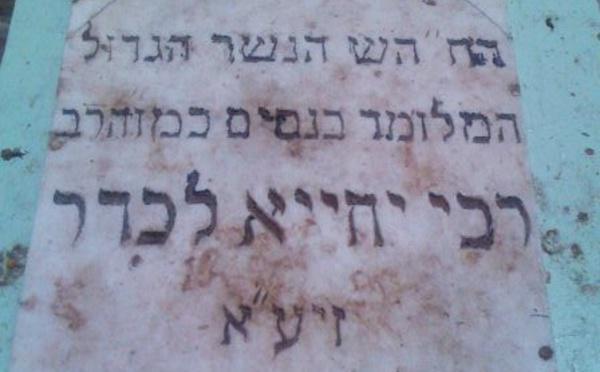 הח״הש הנשר הגדול
המלומד בנסים כמוהרב
רבי יחייא לכדר
זיע״א